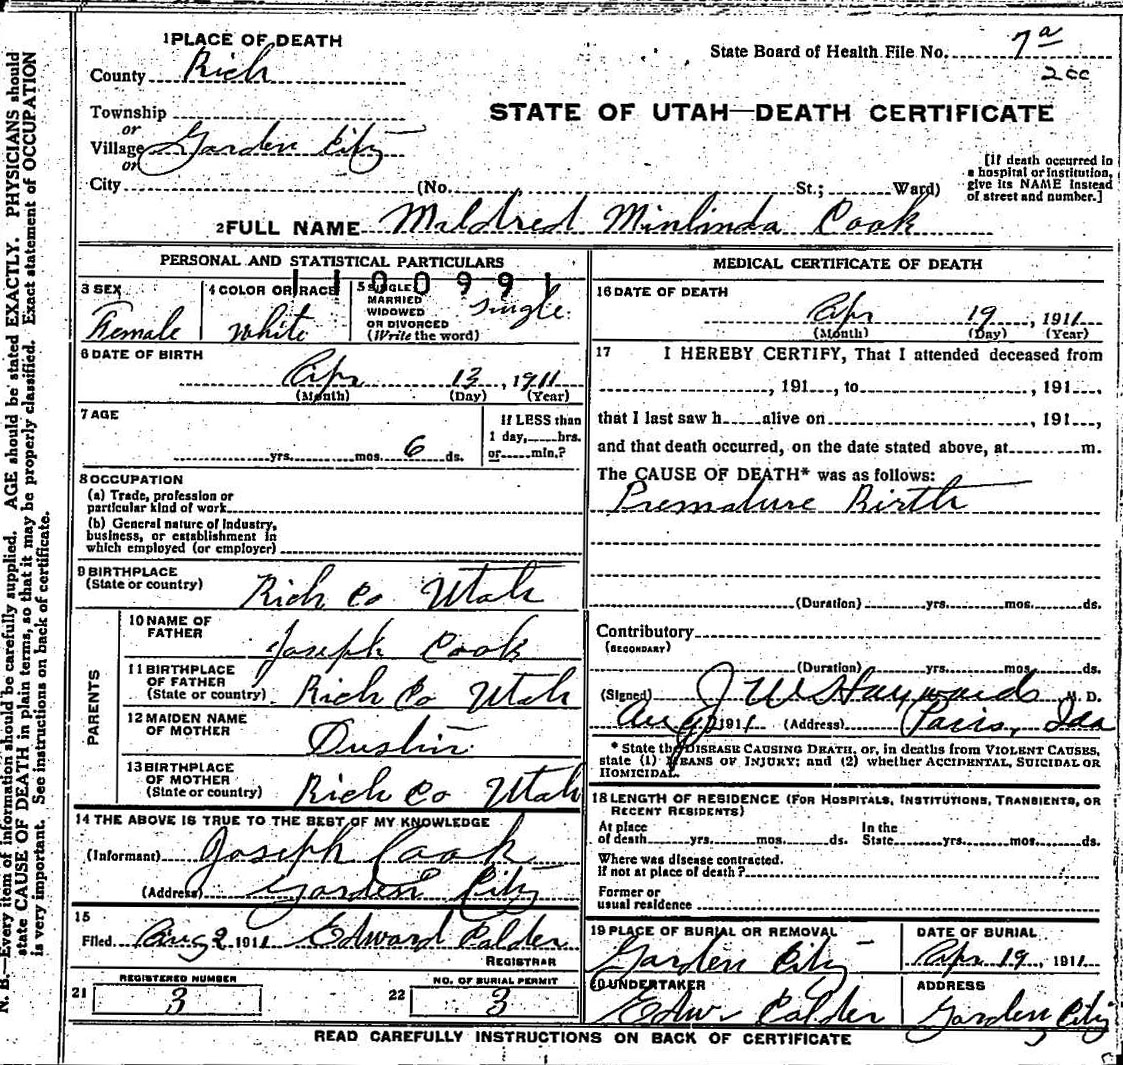 1 PLACE OF DEATH
State Board of Health File No. 7a
County Rich
2cc
Township
or
STATE OF UTAH—DEATH CERTIFICATE
Village Garden City
or
City (No. St.; Ward)
[If death occurred in a hospital or institution, give its NAME instead of street and number.]
2 FULL NAME Mildred Minlinda Cook
PERSONAL AND STATISTICAL PARTICULARS
1100991
3 SEX
Female
4 COLOR OR RACE
White
5 SINGLE
MARRIED
WIDOWED
OR DIVORCED
(Write the word)
Single
6 DATE OF BIRTH
Apr 13, 1911
(Month) (Day) (Year)
7 AGE
yrs. mos. 6 ds.
If LESS than
1 day, hrs.
or min.?
8 OCCUPATION
(a) Trade, profession or
particular kind of work
(b) General nature of Industry,
business, or establishment in
which employed (or employer)
9 BIRTHPLACE
(State or country) Rich Co Utah
PARENTS
10 NAME OF
FATHER Joseph Cook
11 BIRTHPLACE
OF FATHER
(State or country) Rich Co Utah
12 MAIDEN NAME
OF MOTHER Dustin
13 BIRTHPLACE
OF MOTHER
(State or country) Rich Co Utah
14 THE ABOVE IS TRUE TO THE BEST OF MY KNOWLEDGE
(Informant) Joseph Cook
(Address) Garden City
15
Filed Aug 2 1911 Edward Calder
REGISTRAR
21 REGISTERED NUMBER
3
22 NO. OF BURIAL PERMIT
3
MEDICAL CERTIFICATE OF DEATH
16 DATE OF DEATH
Apr 19, 1911
(Month) (Day) (Year)
17 I HEREBY CERTIFY, That I attended deceased from
, 191 , to , 191 ,
that I last saw h alive on , 191 ,
and that death occurred, on the date stated above, at m.
The CAUSE OF DEATH* was as follows:
Premature Birth
(Duration) yrs. mos. ds.
Contributory
(SECONDARY)
(Duration) yrs. mos. ds.
(Signed) J W Hayward M. D.
Aug 1911 (Address) Paris, Ida
* State the DISEASE CAUSING DEATH, or, in deaths from VIOLENT CAUSES,
state (1) MEANS OF INJURY; and (2) whether ACCIDENTAL, SUICIDAL OR
HOMICIDAL.
18 LENGTH OF RESIDENCE (FOR HOSPITALS, INSTITUTIONS, TRANSIENTS, OR
RECENT RESIDENTS)
At place
of death yrs. mos. ds.
In the
State yrs. mos. ds.
Where was disease contracted.
if not at place of death?
Former or
usual residence
19 PLACE OF BURIAL OR REMOVAL
Garden City
DATE OF BURIAL
Apr 19, 1911
20 UNDERTAKER
Edw Calder
ADDRESS
Garden City
READ CAREFULLY INSTRUCTIONS ON BACK OF CERTIFICATE
N. B.—Every item of information should be carefully supplied. AGE should be stated EXACTLY. PHYSICIANS should
state CAUSE OF DEATH in plain terms, so that it may be properly classified. Exact statement of OCCUPATION
is very important. See instructions on back of certificate.